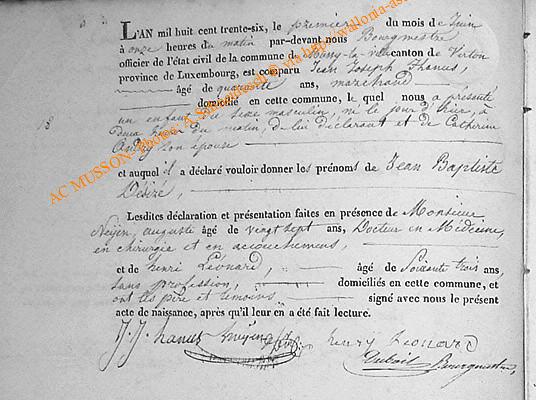 L'AN mil huit cent trente-six, le premier du mois de Juin
à onze heures du matin par-devant nous Bourgmestre
officier de l'état civil de la commune de Mussy-la-ville canton de Virton
province de Luxembourg, est comparu Jean Joseph Thanus,
âgé de quarante ans, marchand
domicilié en cette commune, le quel nous a présenté
8 un enfant du sexe masculin, né le jour d'hier, à
deux heures du matin, de lui déclarant et de Catherine
son épouse
et auquel il a déclaré vouloir donner les prénoms de Jean Baptiste
Désiré,
Lesdites déclaration et présentation faites en présence de Monsieur
Neÿen, auguste âgé de vingt sept ans, Docteur en Médecine,
en chirurgie et en accouchemens,
et de henri Léonard, âgé de Soixante trois ans,
sans profession, domiciliés en cette commune, et
ont les père et temoins signé avec nous le présent
acte de naissance, après qu'il leur en a été fait lecture.
J. J. hanus Neÿen henry Leonard
Dubois Bourgmestre,
AC MUSSON - Photo A. S. © via http://wallonia-as